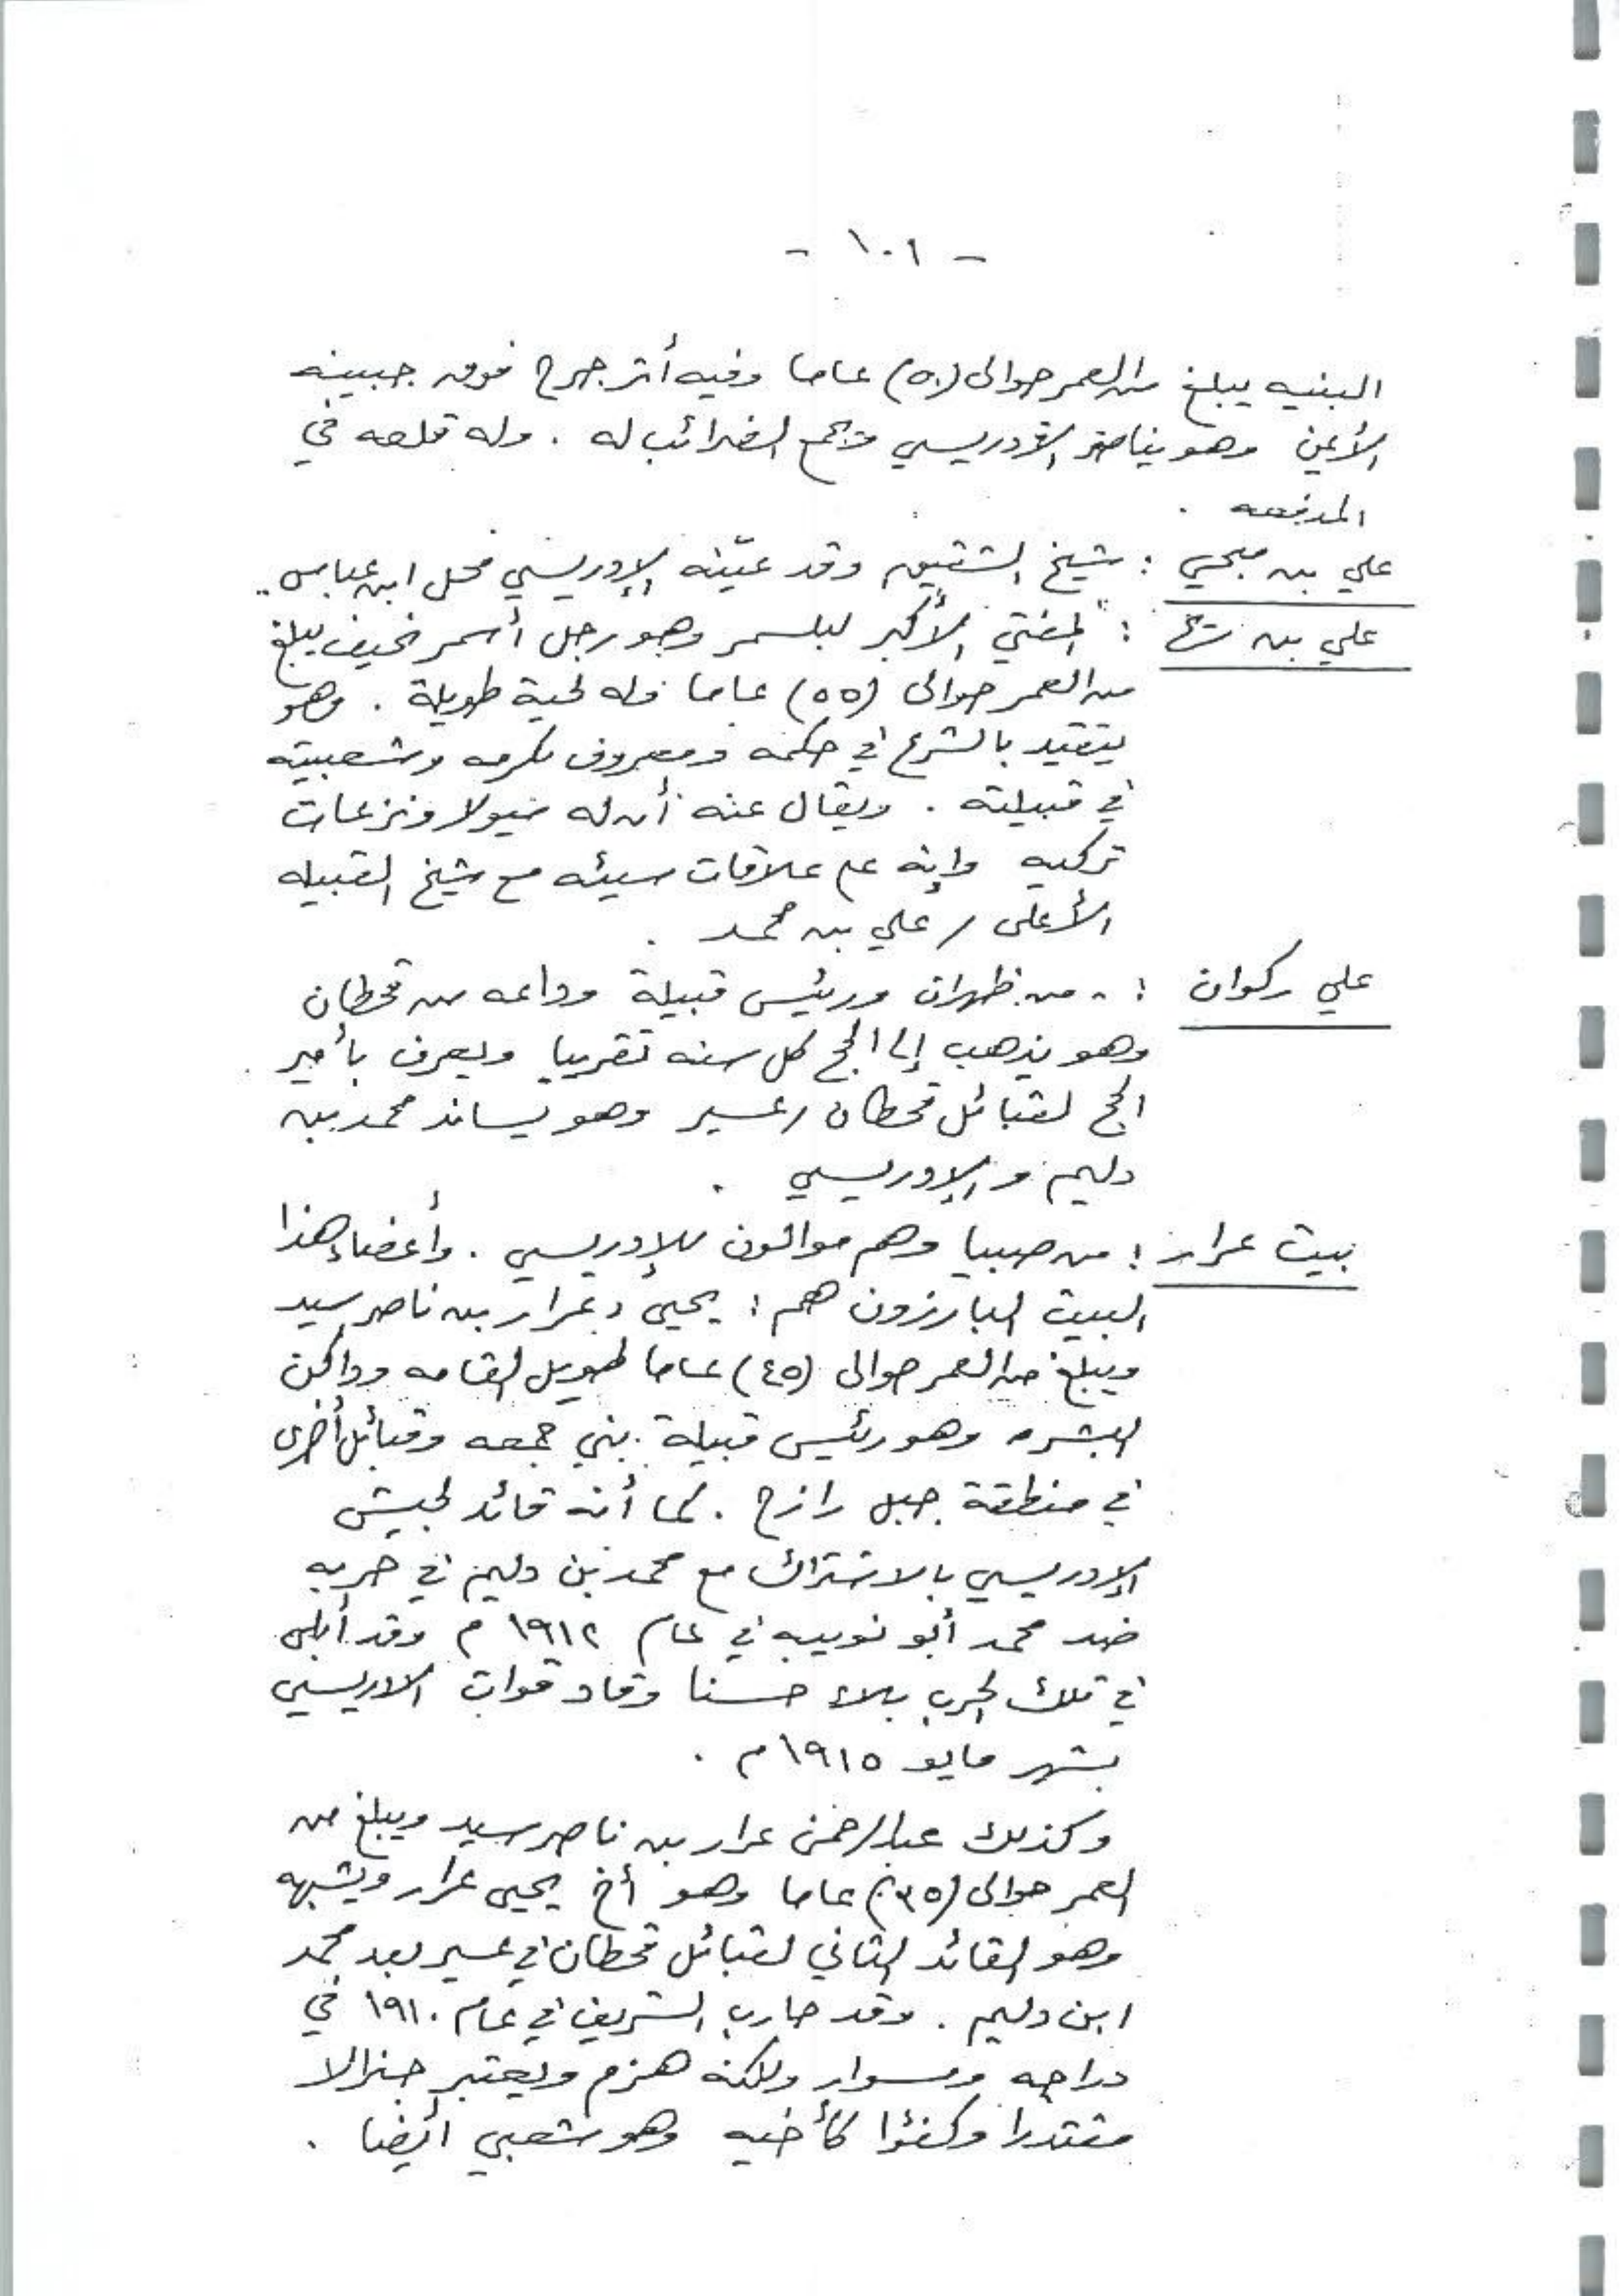 - ١٠١ -
البنيه يبلغ من العمر حوالى (٥٠) عاما وفيه أثر جرح فوق جبينه
الأيمن وهو يناصر الإدريسي ويجمع الضرائب له . وله قلعه في
المدفعه .
علي بن مجحي : شيخ الشقيق وقد عيّنه الإدريسي محل ابن عباس ..
علي بن : المفتي الأكبر لبلسمر وهو رجل أسمر نحيف يبلغ
من العمر حوالى (٥٥) عاما وله لحية طويلة . وهو
يتقيد بالشرع في حكمه ومعروف بكرمه وشعبيته
في قبيلته . ويقال عنه أن له ميولا ونزعات
تركيه وإنه على علاقات سيئه مع شيخ القبيله
الأعلى / علي بن محمد .
علي ركوان : من ظهران ورئيس قبيلة وداعه من قحطان
وهو يذهب إلى الحج كل سنه تقريبا ويعرف بأمير
الحج لقبائل قحطان / عسير وهو يساند محمد بن
دليم والإدريسي .
بيت عرار : من صبيا وهم موالون للإدريسي . وأعضاء هذا
البيت البارزون هم : يحيى عرار بن ناصر سيد
ويبلغ من العمر حوالى (٤٥) عاما طويل القامه وداكن
البشره وهو رئيس قبيلة بني جمعه وقبائل أخرى
في منطقة جبل رازح . كما أنه قائد لجيش
الإدريسي بالاشتراك مع محمد بن دليم في حربه
ضد محمد أبو نويبه في عام ١٩١٢ م وقد أبلى
في تلك الحرب بلاء حسنا وقاد قوات الادريسي
بشهر مايو ١٩١٥ م .
وكذلك عبدالرحمن عرار بن ناصر سيد ويبلغ من
العمر حوالى (٣٥) عاما وهو أخ يحيى عرار ويشبهه
وهو القائد الثاني لقبائل قحطان في عسير بعد محمد
ابن دليم . وقد حارب الشريف في عام ١٩١٠ في
دراجه ومسوار ولكنه هزم ويعتبر جنرالا
مقتدرا وكفؤا كأخيه وهو شعبي أيضا .